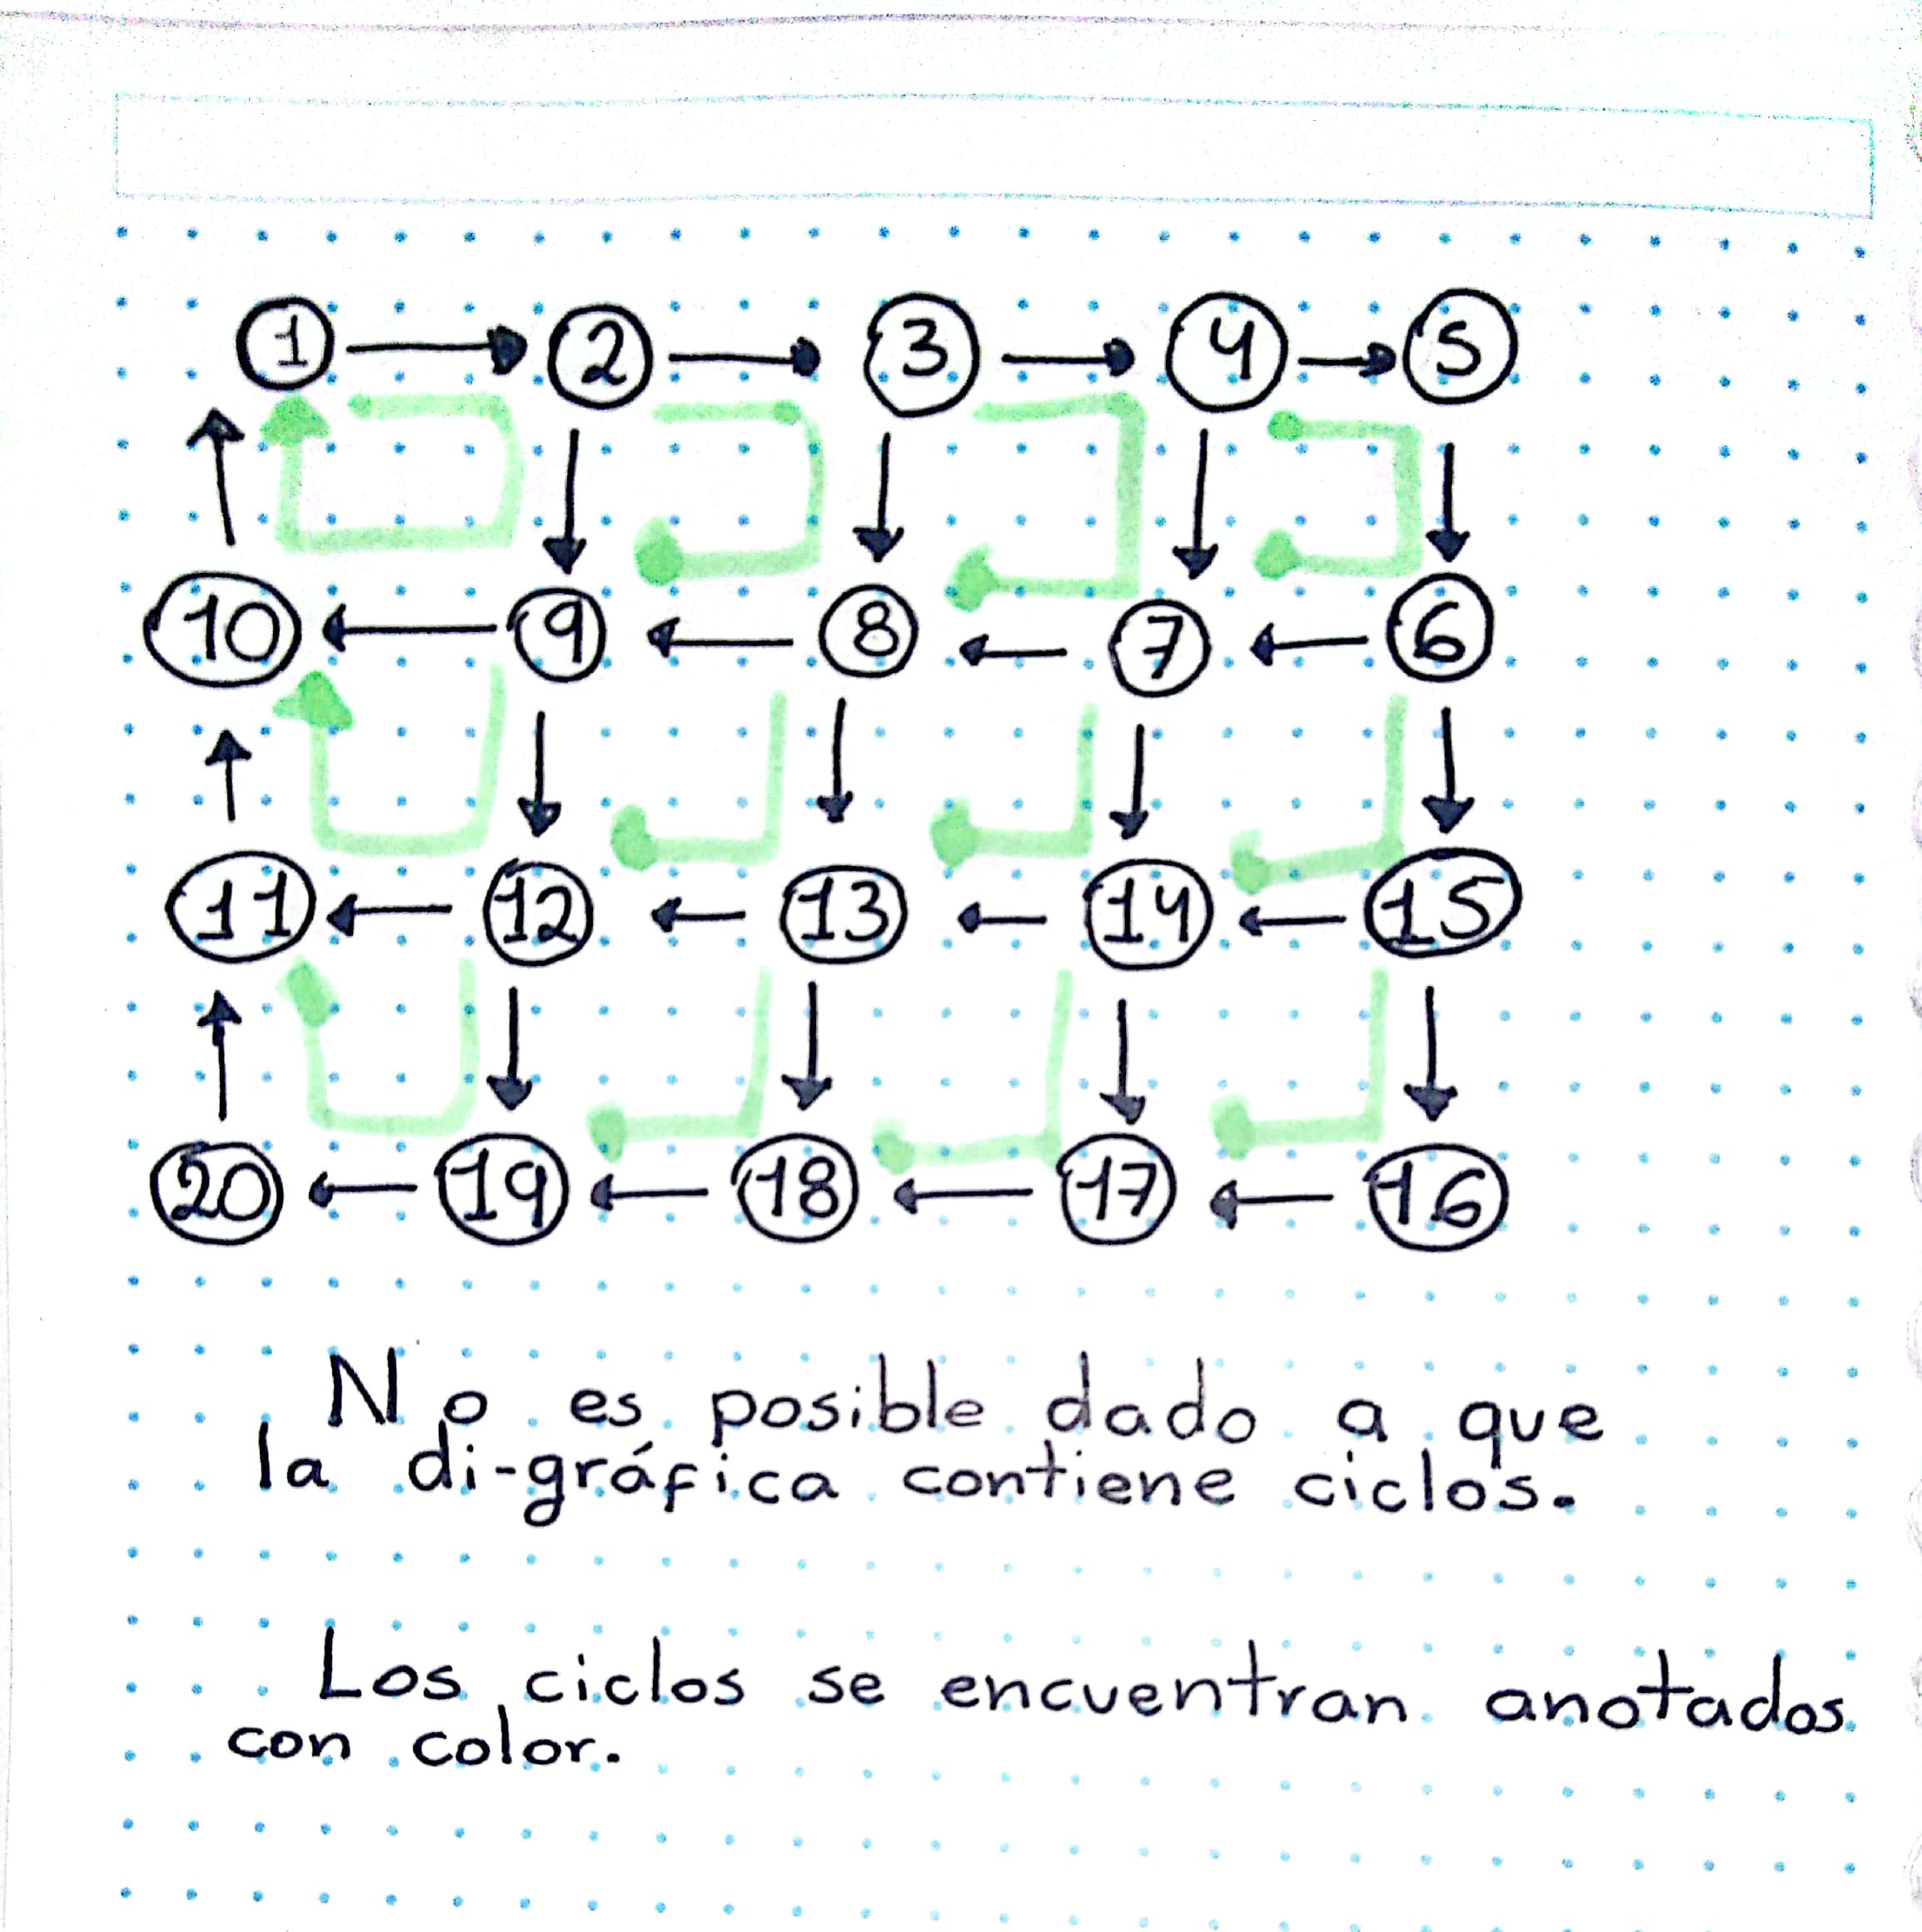 1 2 3 4 5
10 9 8 7 6
11 12 13 14 15
20 19 18 17 16
No es posible dado a que
la di-gráfica contiene ciclos.
Los ciclos se encuentran anotados
con color.